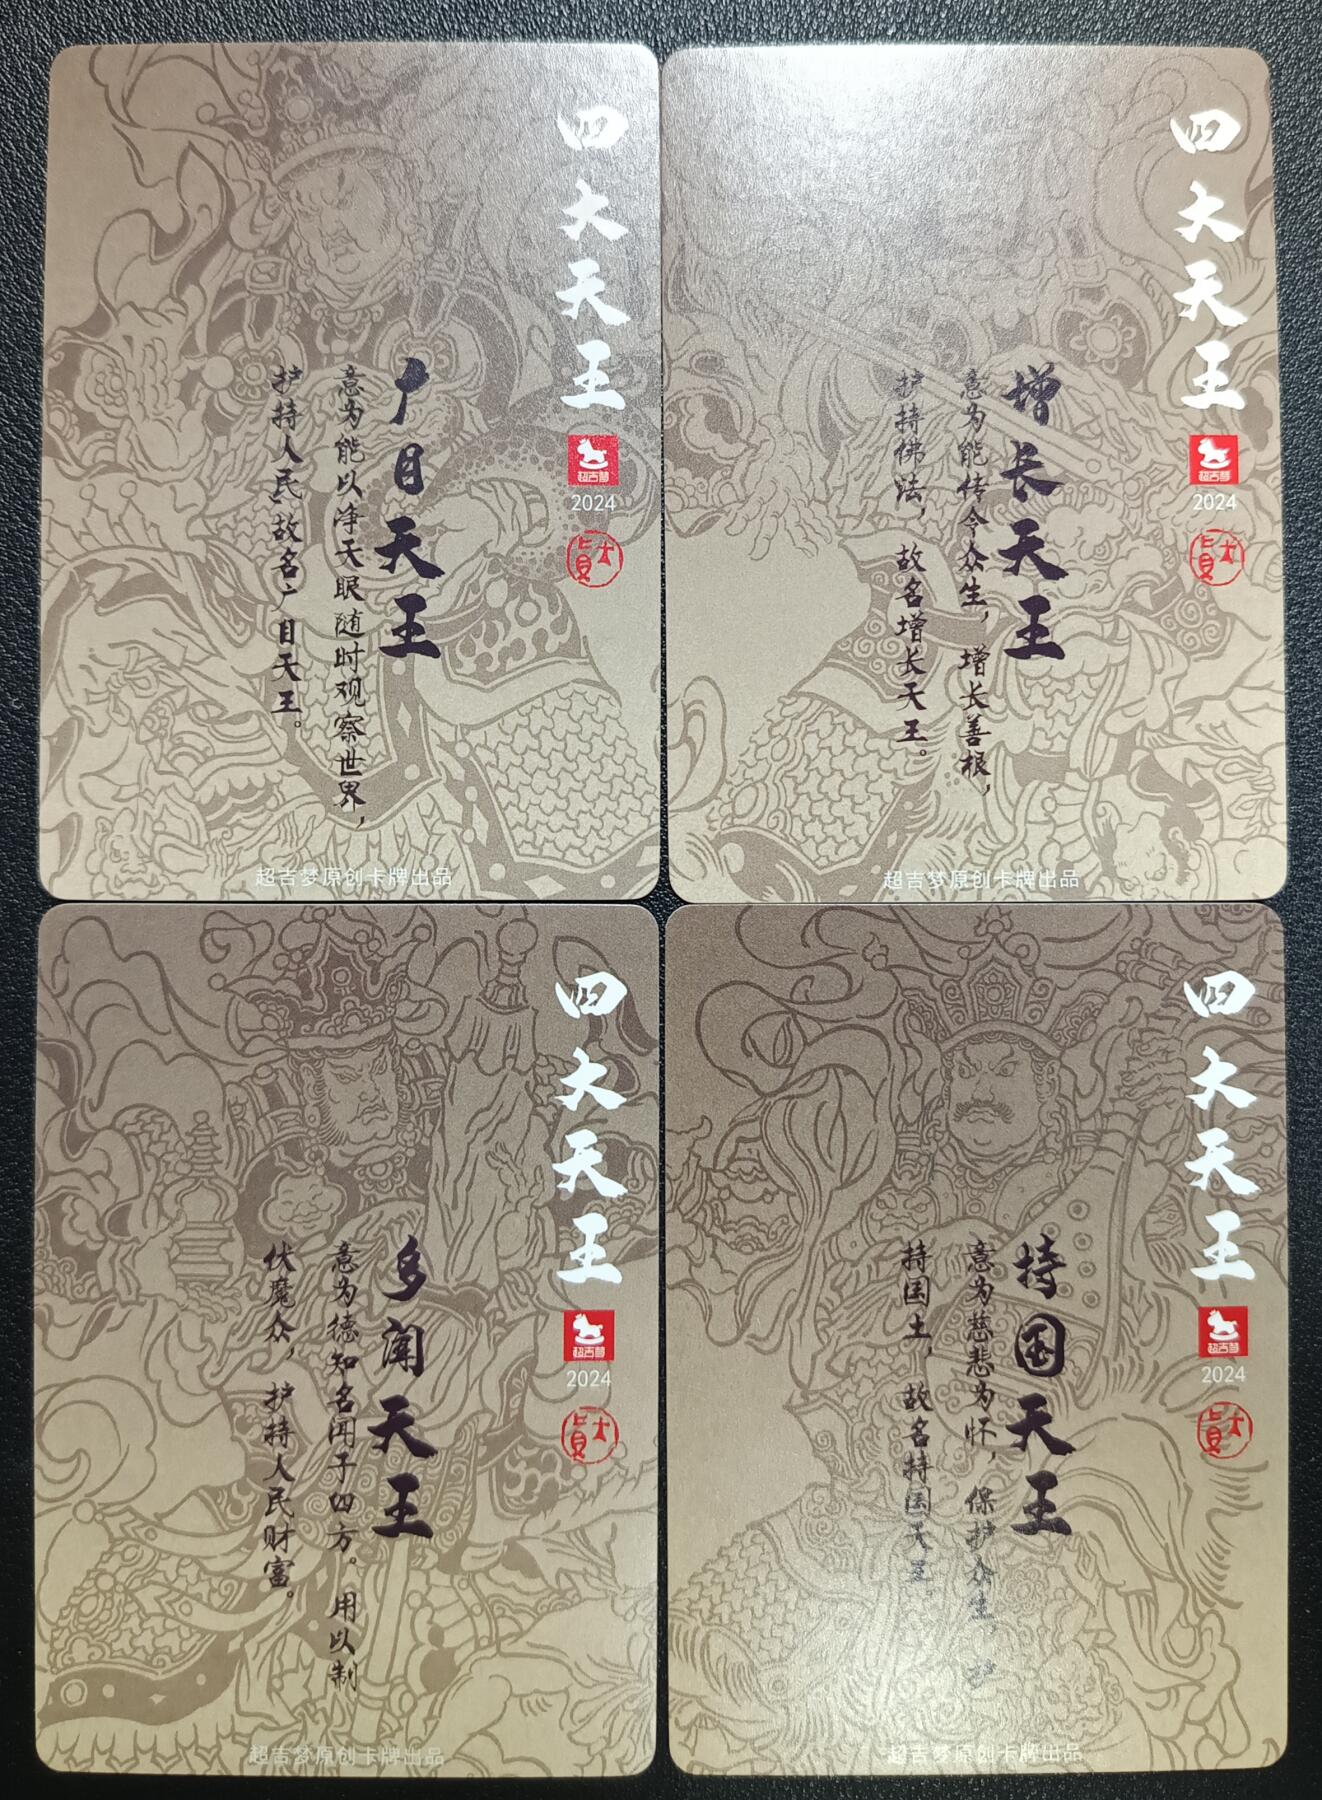 四大天王
超吉梦
2024
广目天王
意为能以净天眼随时观察世界，
护持人民故名广目天王。
超吉梦原创卡牌出品
四大天王
超吉梦
2024
增长天王
意为能传令众生，增长善根，
护持佛法，故名增长天王。
超吉梦原创卡牌出品
四大天王
超吉梦
2024
多闻天王
意为德知名闻于四方。用以制
伏魔众，护持人民财富。
超吉梦原创卡牌出品
四大天王
超吉梦
2024
持国天王
意为慈悲为怀，保护众生，护
持国土，故名持国天王。
超吉梦原创卡牌出品